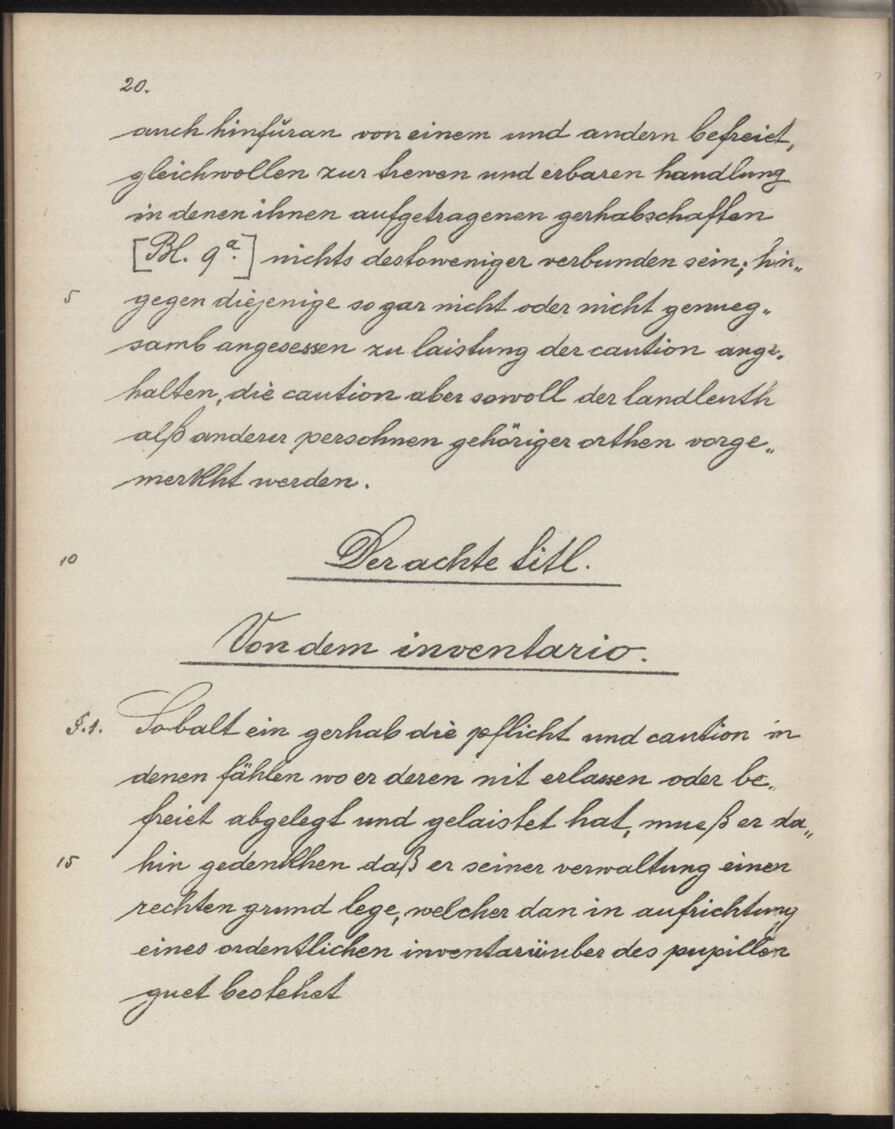 20.
auch hinfüran von einem und andern befreiet,
gleichwollen zur trewen und erbaren handlung
in denen ihnen aufgetragenen gerhabschaften
[Bl. 9a.] nichts destoweniger verbunden sein; hin„
5 gegen diejenige so gar nicht oder nicht genueg„
samb angesessen zu laistung der caution ange„
halten, die caution aber sowoll der landleuth
alß anderer persohnen gehöriger orthen vorge„
merkht werden.
10 Der achte titl.
Von dem inventario.
§.1. Sobalt ein gerhab die pflicht und caution in
denen fählen wo er deren nit erlassen oder be„
freiet abgelegt und gelaistet hat, mueß er da„
15 hin gedenkhen daß er seiner verwaltung einen
rechten grund lege, welcher dan in aufrichtung
eines ordentlichen inventarii uber des pupillen
guet bestehet